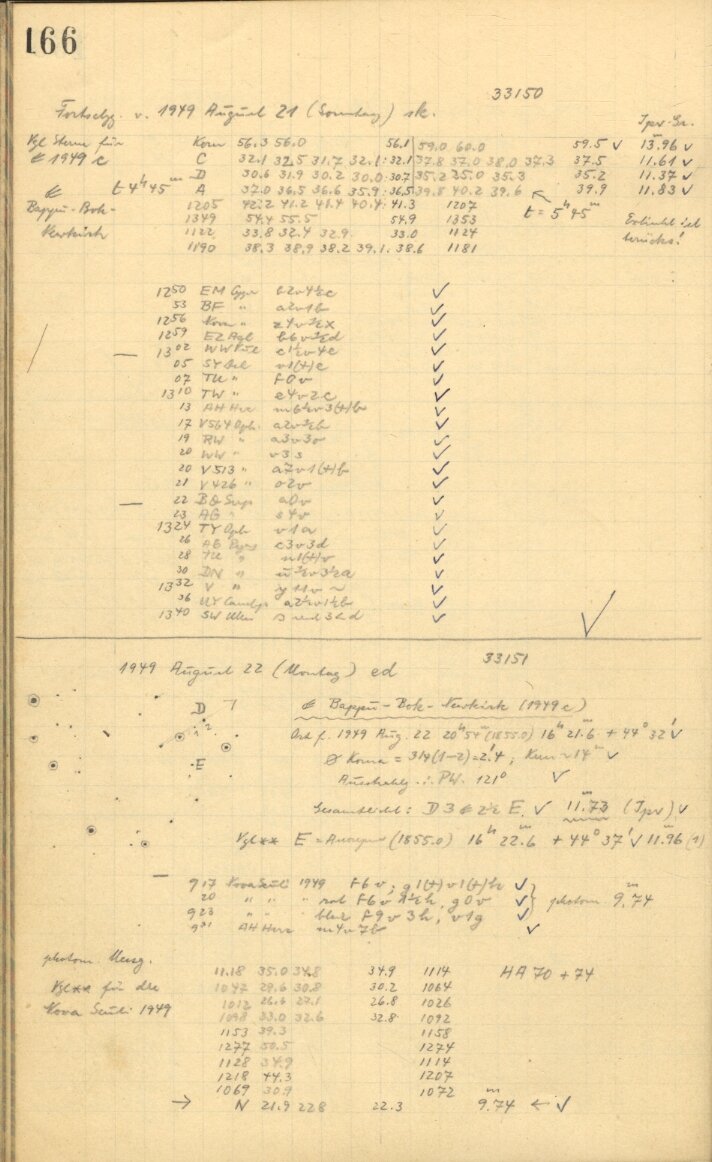 166
33150
Fortsetzg. v. 1949 August 21 (Sonntag) sk.
Ipv-Gr.
Vgl Sterne für Kern 56.3 56.0 56.1 59.0 60.0 59.5 ✓ 13.96 ✓
1949 c C 32.1 32.5 31.7 32.1 32.1 37.8 37.0 38.0 37.3 37.5 11.61 ✓
t 4h 45m D 30.6 31.9 30.2 30.0 30.7 35.2 35.0 35.3 35.2 11.37 ✓
A 37.0 36.5 36.6 35.9 36.5 39.8 40.2 39.6 39.9 11.83 ✓
Bappu-Bok- 1205 42.2 41.2 41.4 40.4 41.3 1207 t = 5h 45m
Newkirk 1349 54.4 55.5 54.9 1353
1122 33.8 32.4 32.9 33.0 1124
1190 38.3 38.9 38.2 39.1 38.6 1181
1250 EM Cygn ✓
53 BF " a2v1b ✓
1256 Nova " ✓
1259 EZ Aql ✓
— 1302 WW ✓
05 SY Del v1(+)c ✓
07 TU " f0v ✓
1310 TW " e4v2c ✓
13 AH Her m6½v3(+)b ✓
17 V564 Oph. ✓
19 RW " a3v3o ✓
20 WW " v3s ✓
20 V513 " a7v1(+)b ✓
21 V426 " o2v ✓
— 22 BQ Serp a0v ✓
23 AG " s4v ✓
1324 TY Oph v1a ✓
26 AG c3v3d ✓
28 TU " n1(+)v ✓
30 DN " ✓
1332 V " ✓
36 UY a2½v1½b ✓
1340 SW UMi ✓
33151
1949 August 22 (Montag) ed
D
1 2
E
Bappu-Bok-Newkirk (1949 c)
Ort f. 1949 Aug. 22 20h 54m (1855.0) 16h 21m.6 + 44° 32' ✓
Ø Koma = 3/4(1-2) = 2'.4; Kern ~14m ✓
PW. 121° ✓
Gesamtlicht: D 3 2½ E. ✓ 11m.73 (Ipv) ✓
Vgl** E = Anonym (1855.0) 16h 22m.6 + 44° 37' ✓ 11m.96 (1)
— 917 Nova Scuti 1949 f6v; g1(+)v1(+)h ✓
20 " " " rot f6v 1½h, g0v ✓ photom 9m.74
923 " " blau f9v3h, v1g ✓
AH Herc m4v7b ✓
photom. Messg. 11.18 35.0 34.8 34.9 1114 HA 70 + 74
Vgl** für die 1047 29.6 30.8 30.2 1064
Nova Scuti 1949 1012 26.6 27.1 26.8 1026
1098 33.0 32.6 32.8 1092
1153 39.3 1158
1277 50.5 1274
1128 34.9 1114
1218 44.3 1207
1069 30.9 1072
→ N 21.9 22.8 22.3 9m.74 ← ✓